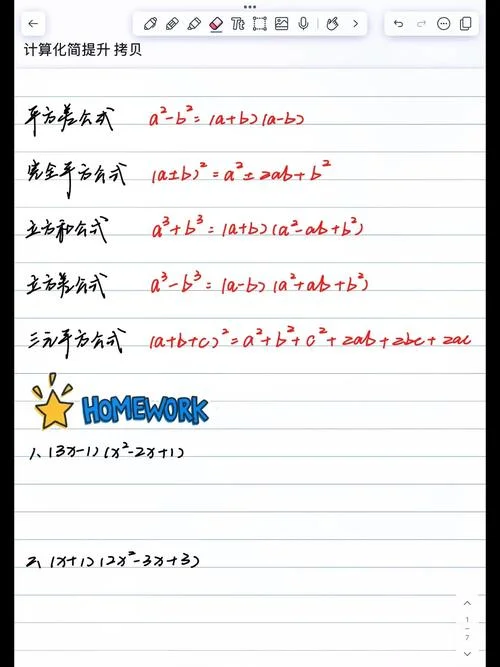 计算化简提升 拷贝
平方差公式 a²-b²=(a+b)(a-b)
完全平方公式 (a±b)²=a²±2ab+b²
立方和公式 a³+b³=(a+b)(a²-ab+b²)
立方差公式 a³-b³=(a-b)(a²+ab+b²)
三元平方公式 (a+b+c)²=a²+b²+c²+2ab+2bc+2ac
HOMEWORK
1、(3x-1)(x²-2x+1)
2、(x+1)(2x²-3x+3)
1
7